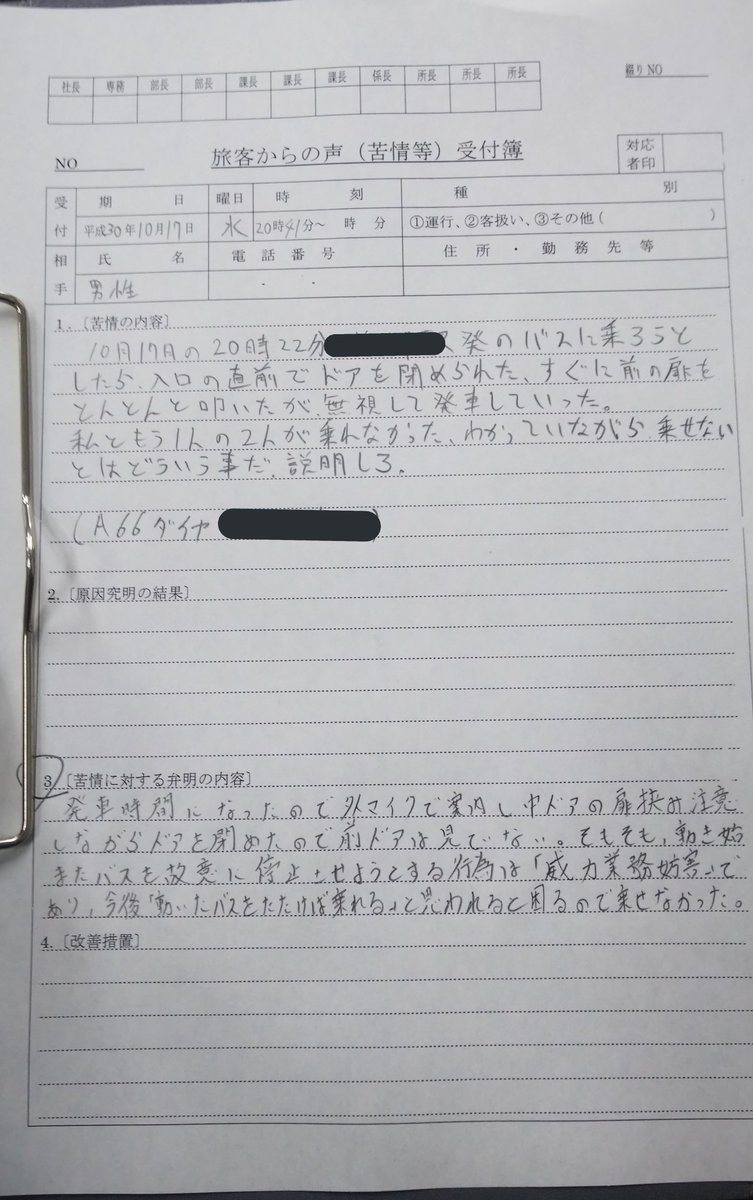 社長 専務 部長 部長 課長 課長 課長 係長 所長 所長 所長
綴りNO
NO 旅客からの声（苦情等）受付簿 対応者印
受付 期日 曜日 時刻 種別
平成30年10月17日 水 20時41分～ 時 分 ①運行、②客扱い、③その他（ ）
相手 氏名 電話番号 住所・勤務先等
男性 ・ ・
1.〔苦情の内容〕
10月17日の20時22分 発のバスに乗ろうと
したら、入口の直前でドアを閉められた、すぐに前の扉を
とんとんと叩いたが、無視して発車していった。
私ともう1人の2人が乗れなかった、わかっていながら乗せない
とはどういう事だ、説明しろ、
(A66ダイヤ
2.〔原因究明の結果〕
3.〔苦情に対する弁明の内容〕
発車時間になったので外マイクで案内し中ドアの扉挟み注意
しながらドアを閉めたので前ドアは見ていない。そもそも、動き始
めたバスを故意に停止させようとする行為は「威力業務妨害」で
あり、今後「動いたバスをたたけば乗れる」と思われると困るので乗せなかった。
4.〔改善措置〕